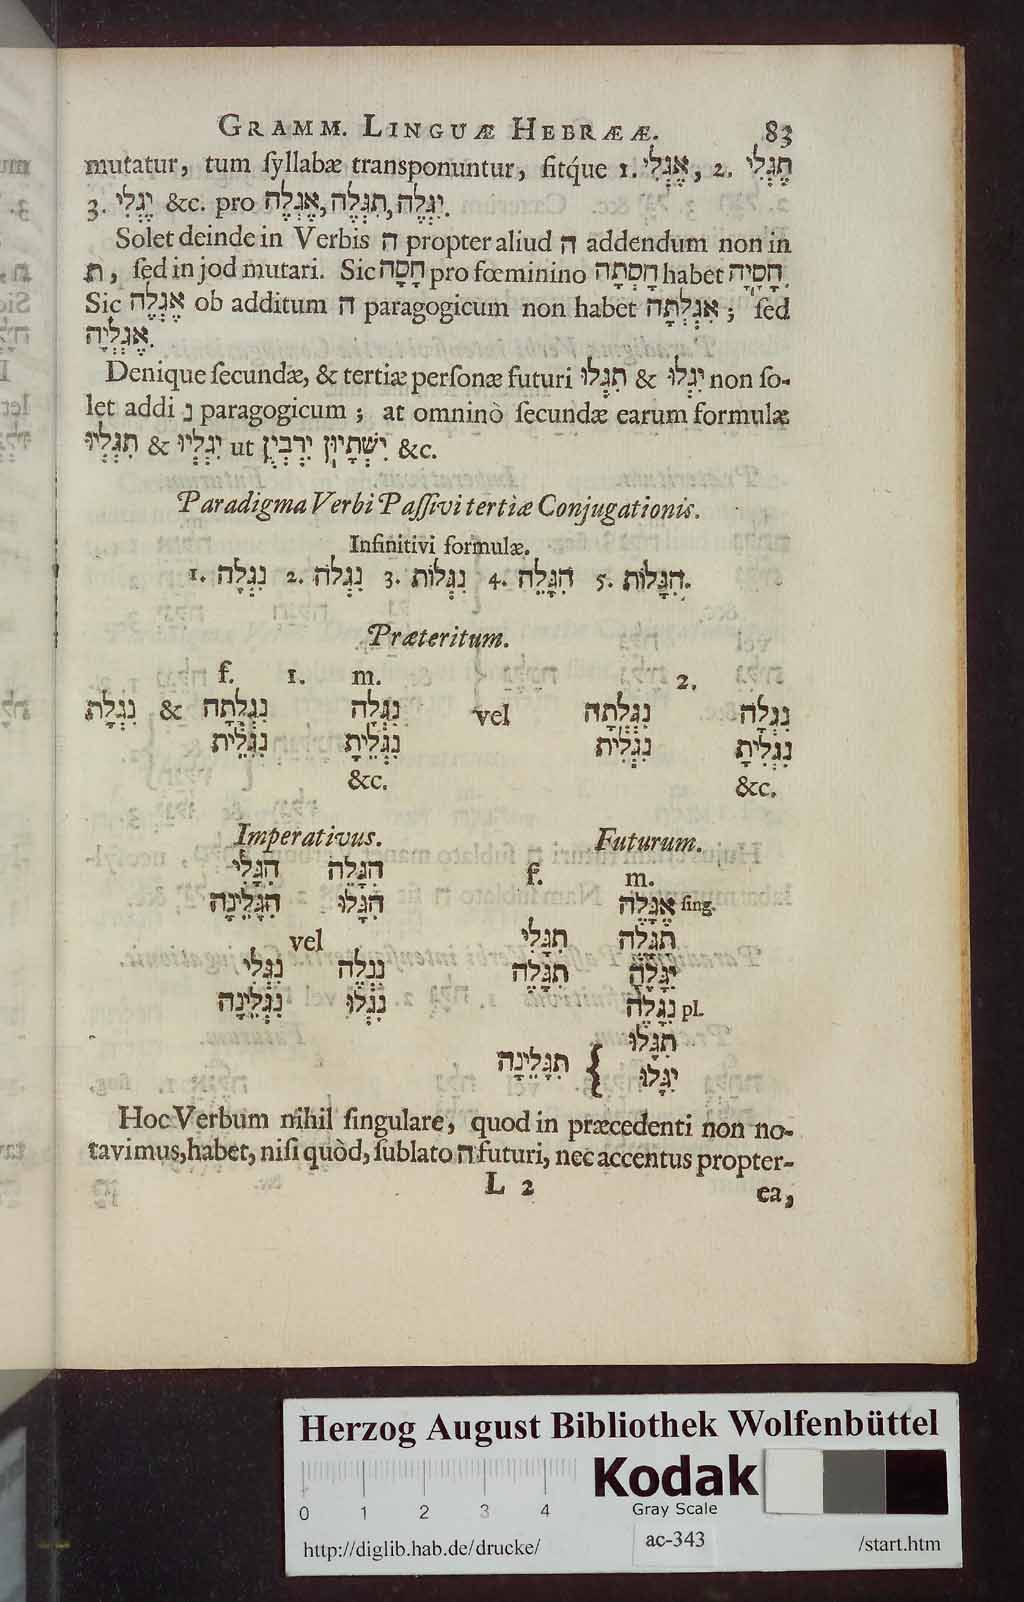 GRAMM. LINGUÆ HEBRÆÆ. 83
mutatur, tum ſyllabæ transponuntur, ſitq́ue 1. אֶגְלִי, 2. תֶּגְלִי
3. יֶגְלִי &c. pro אֶגְלֶה, תִּגְלֶה, יִגְלֶה.
Solet deinde in Verbis ה propter aliud ה addendum non in
ת, ſed in jod mutari. Sic חָסָה pro fœminino חָסְתָה habet חָסָיָה
Sic אֶגְלֶה ob additum ה paragogicum non habet אִגְלְתָה; ſed
אֶגְלְיָה.
Denique ſecundæ, & tertiæ perſonæ futuri תִגְלוּ & יִגְלוּ non ſo-
let addi נ paragogicum; at omninò ſecundæ earum formulæ
תִגְלְיוּ & יִגְלְיוּ ut יִרְבְּיֻן יִשְׁתָּיוּן &c.
Paradigma Verbi Paſſivi tertiæ Conjugationis.
Infinitivi formulæ.
1. נִגְלָה 2. נִגְלֹה 3. נִגְלוֹת 4. הִגָּלֵה 5. הִגָּלוֹת.
Præteritum.
f. 1. m. 2.
נִגְלָת & נִגְלְתָה נִגְלָה vel נִגְלְתָה נִגְלָה
נִגְלֵית נִגְלֵיתָ נִגְלִית נִגְלִיתָ
&c. &c.
Imperativus. Futurum.
הִגָּלִי הִגָּלֵה f. m.
הִגָּלֵינָה הִגָּלוּ אֶגָּלֶה ſing.
vel תִגָּלִי תִגָּלֶה
נִגְלִי נִגְלֵה תִגָּלֶה יִגָּלֶה
נִגְלֵינָה נִגְלוּ נִגָּלֶה pl.
תִגָּלוּ
תִגָּלֵינָה { יִגָּלוּ
Hoc Verbum nihil ſingulare, quod in præcedenti non no-
tavimus, habet, niſi quòd, ſublato ה futuri, nec accentus propter-
L 2 ea,
Herzog August Bibliothek Wolfenbüttel
Kodak
Gray Scale
0 1 2 3 4
http://diglib.hab.de/drucke/ ac-343 /start.htm